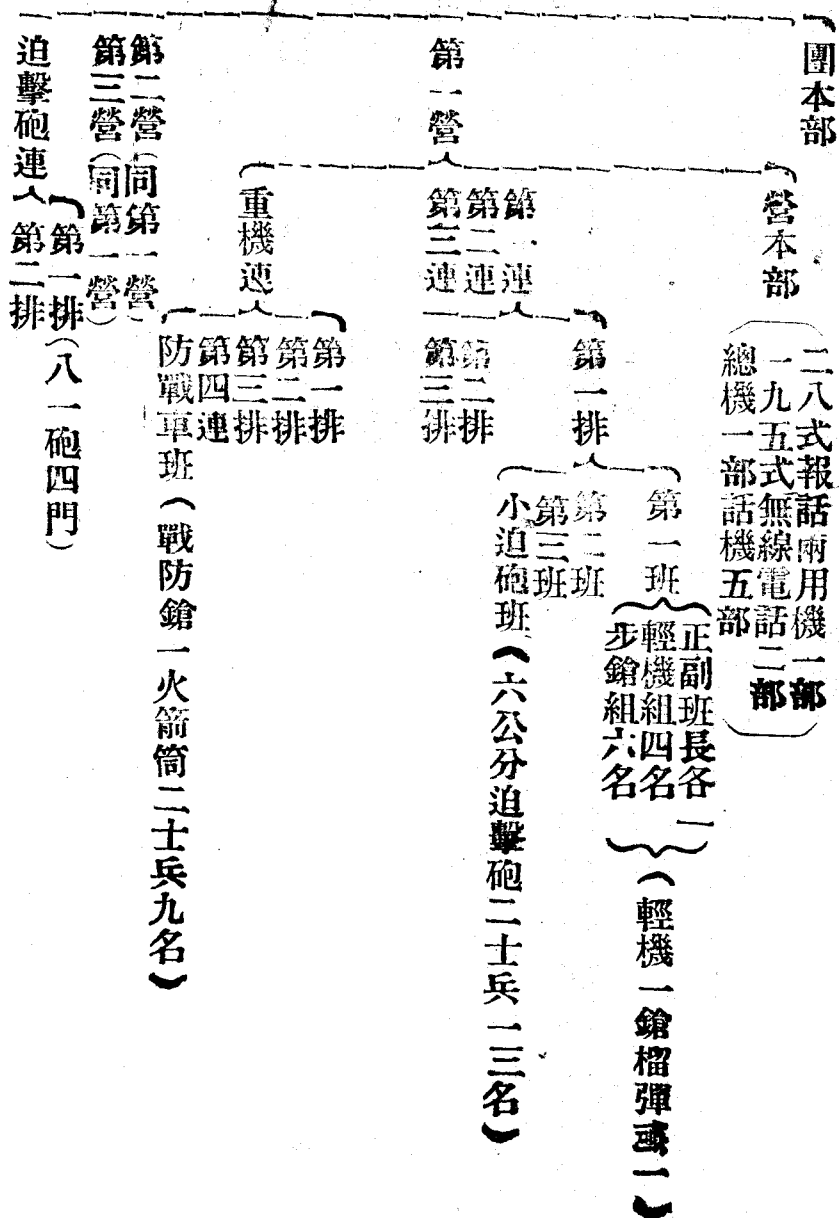 團本部
第一營
營本部
二八式報話兩用機一部
一九五式無線電話二部
總機一部話機五部
第一連
第二連
第三連
第一排
第一班
正副班長各一
輕機組四名
步鎗組六名
(輕機一鎗榴彈一)
第二班
第三班
小迫砲班(六公分迫擊砲二士兵一三名)
第二排
第三排
重機連
第一排
第二排
第三排
第四連
防戰車班(戰防鎗一火箭筒二士兵九名)
第二營(同第一營)
第三營(同第一營)
迫擊砲連
第一排(八一砲四門)
第二排